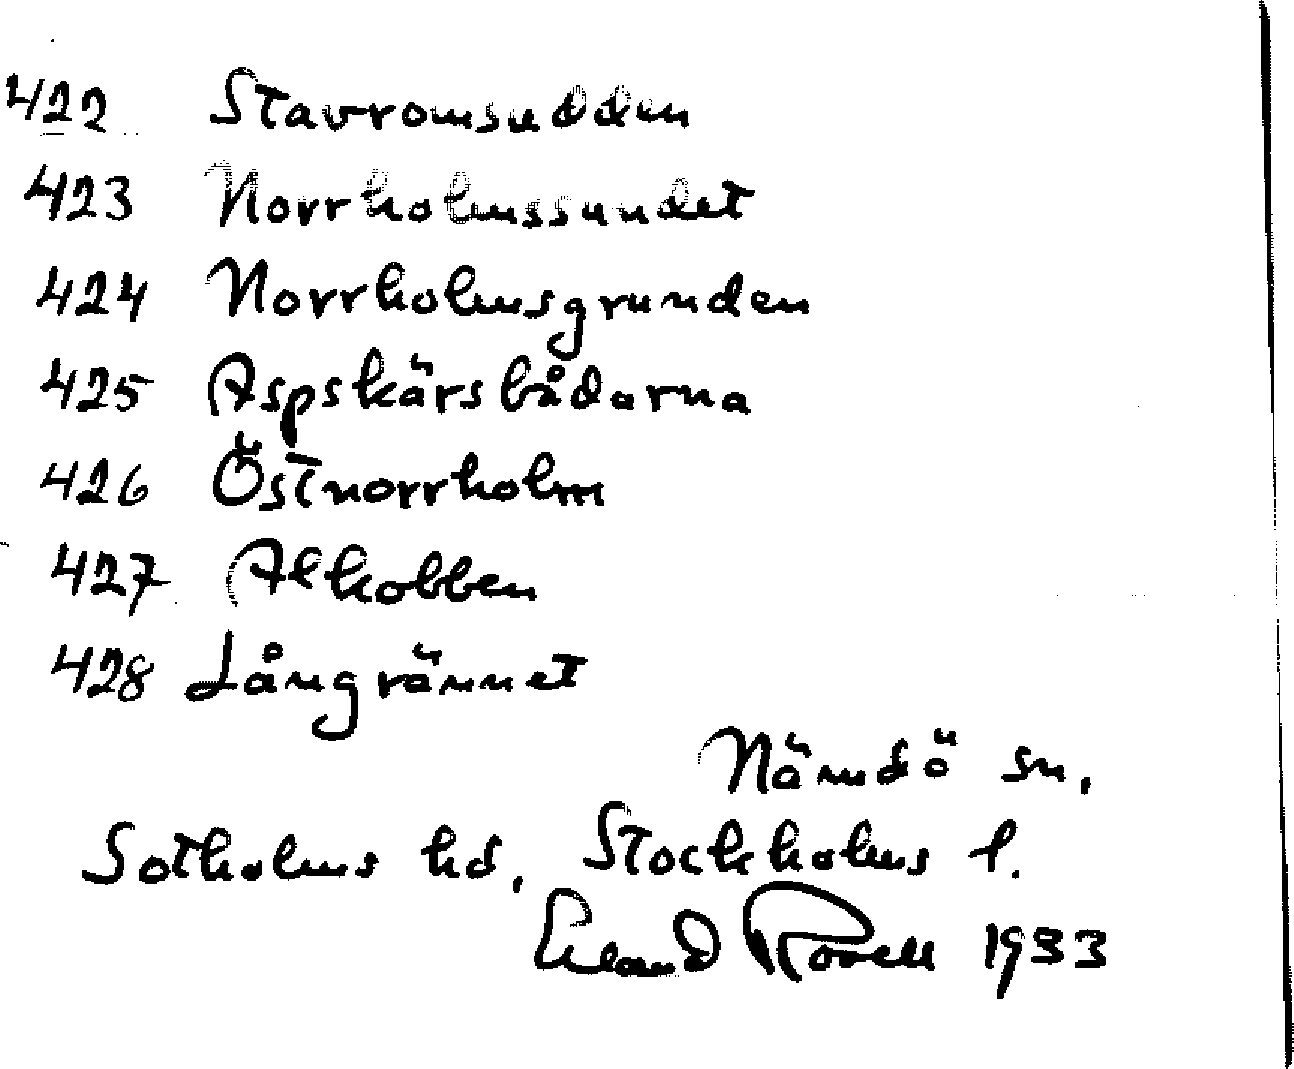 422 Stavromsudden
423 Norrholmssundet
424 Norrholmsgrunden
425 Aspskärsbådarna
426 Östnorrholm
427 Alkobben
428 Långrännet
Nämdö sn.
Sotholms hd, Stockholms l.
Erland Rosell 1933